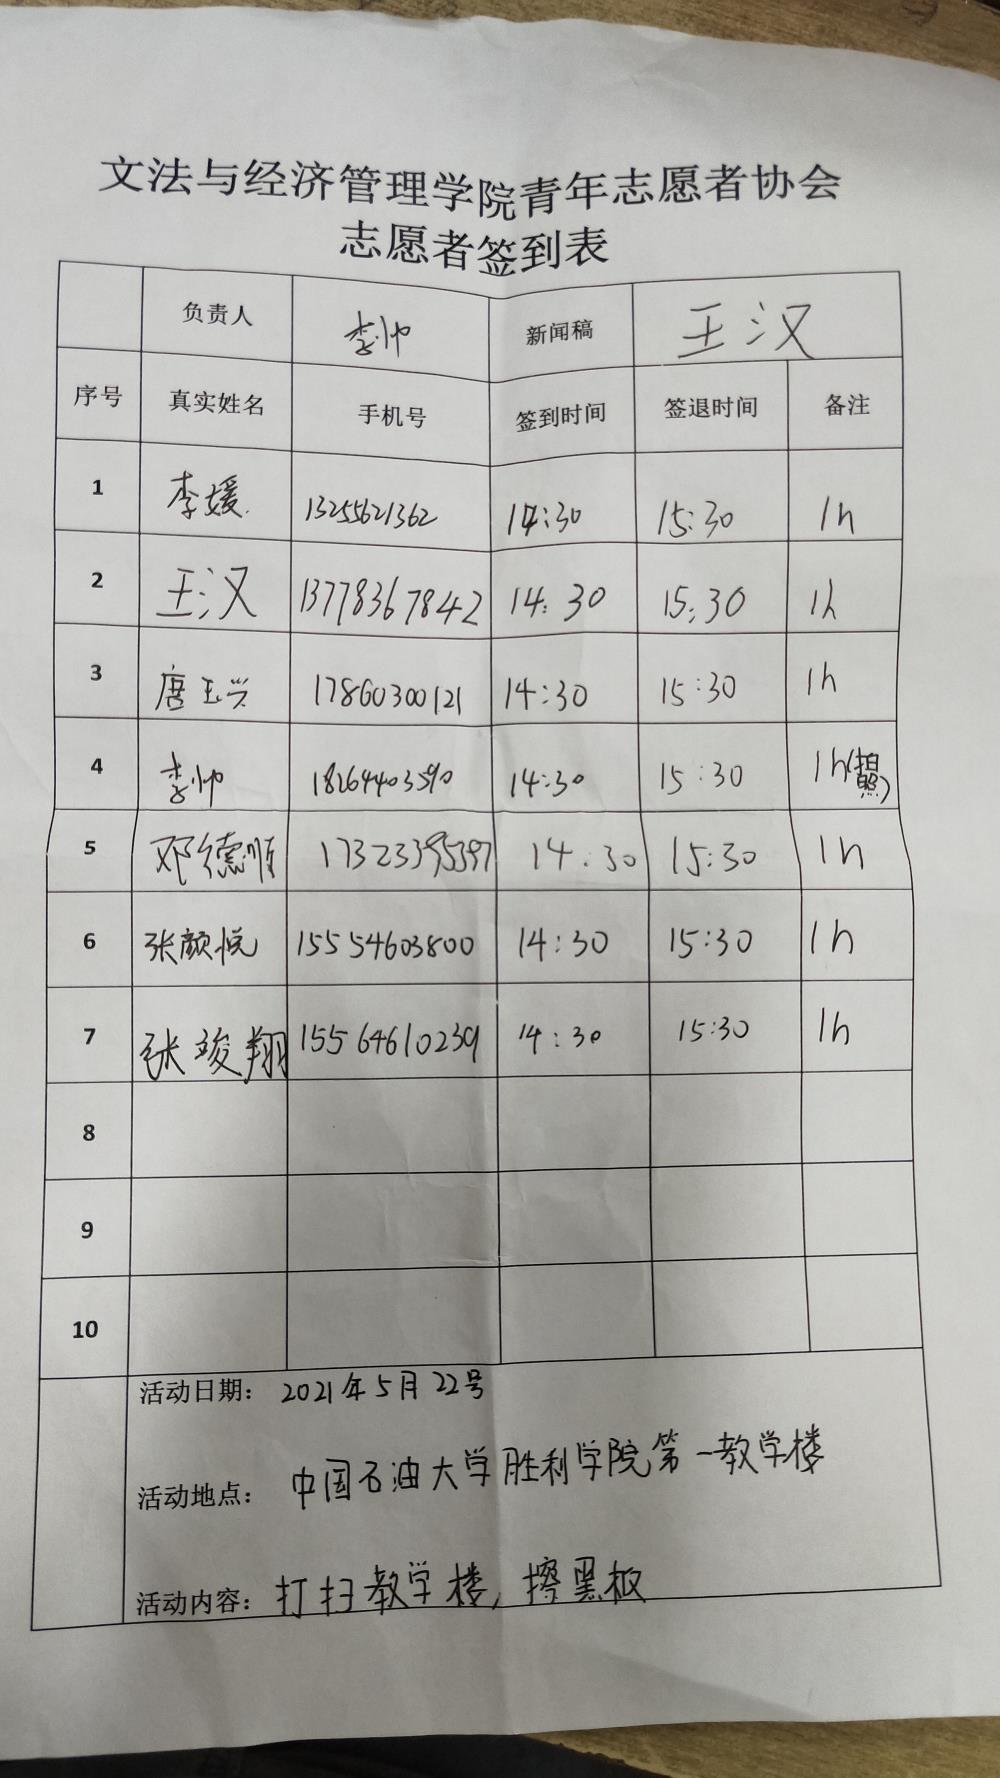 文法与经济管理学院青年志愿者协会
志愿者签到表
负责人 李帅 新闻稿 王汉
序号 真实姓名 手机号 签到时间 签退时间 备注
1 李媛 13255621362 14:30 15:30 1h
2 王汉 13778367842 14:30 15:30 1h
3 唐玉兴 17860300121 14:30 15:30 1h
4 李帅 18264403590 14:30 15:30 1h(拍照)
5 邓德顺 17323395397 14:30 15:30 1h
6 张颜悦 15554603800 14:30 15:30 1h
7 张竣翔 15564610239 14:30 15:30 1h
8
9
10
活动日期: 2021年5月22号
活动地点: 中国石油大学胜利学院第一教学楼
活动内容: 打扫教学楼,擦黑板